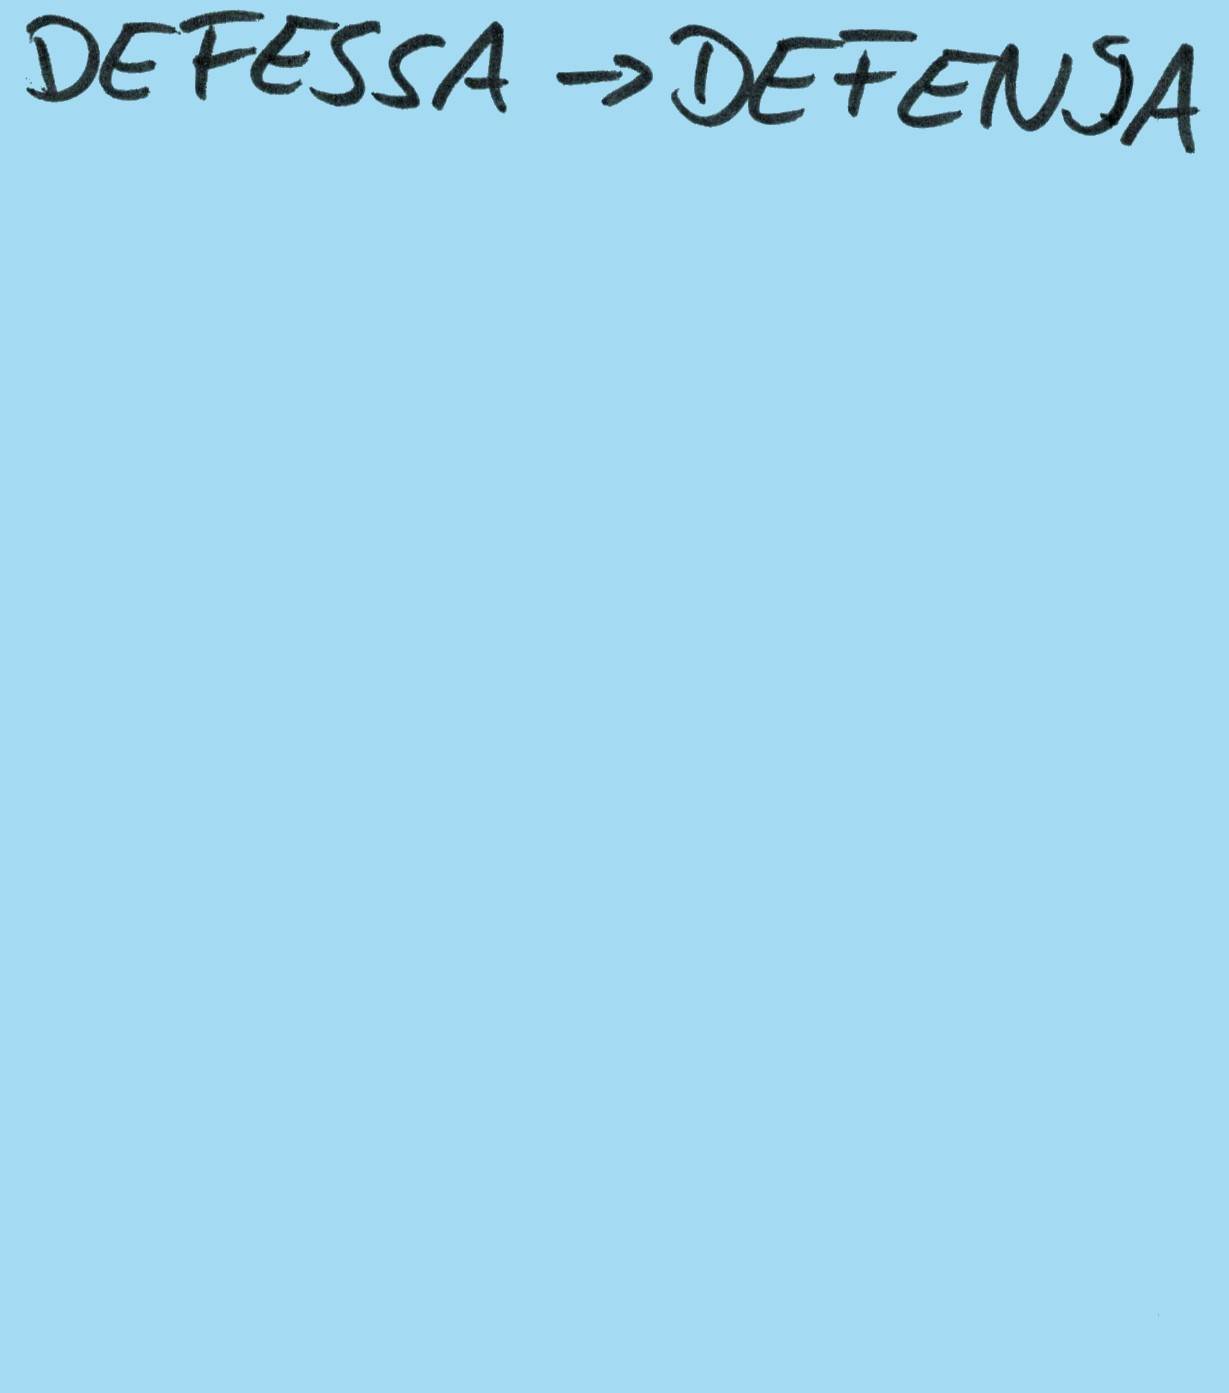 DEFESSA → DEFENSA